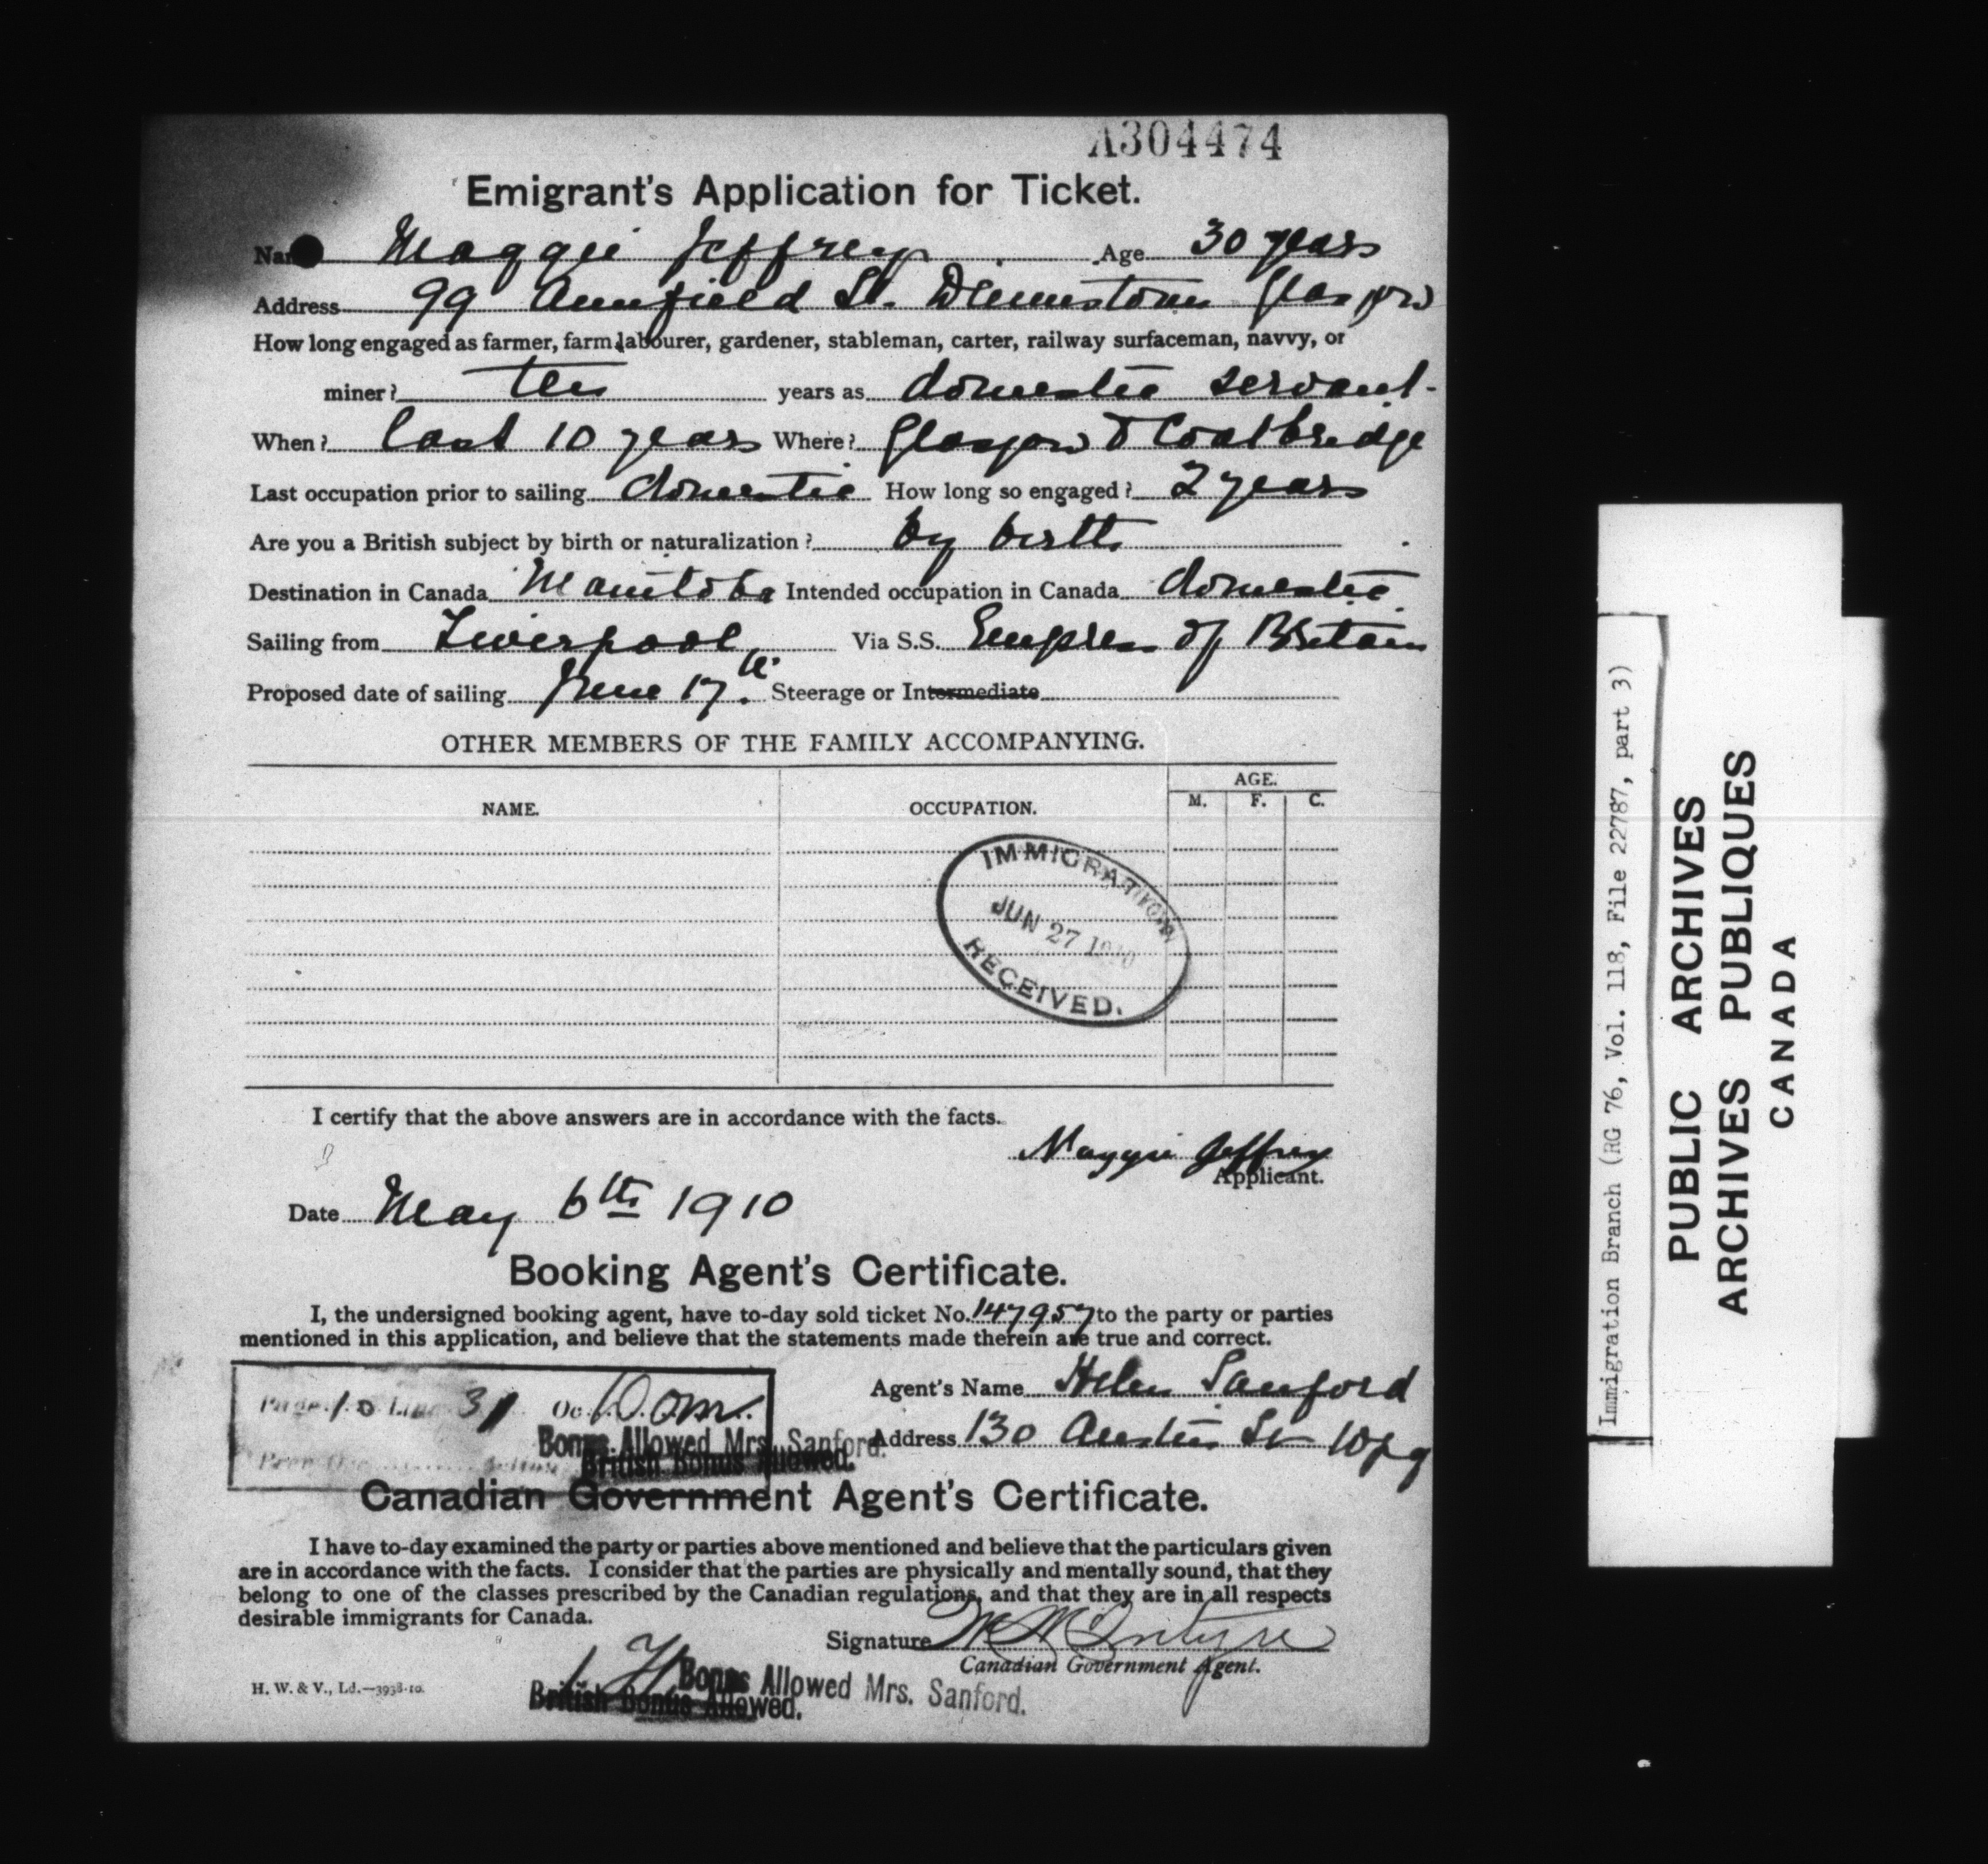 A304474
Emigrant's Application for Ticket.
Na Maggie Jeffrey Age 30 years
Address 99 Annfield St. Dennistoun Glasgow
How long engaged as farmer, farm labourer, gardener, stableman, carter, railway surfaceman, navvy, or
miner? ten years as domestic servant
When? last 10 years Where? Glasgow & Coatbridge
Last occupation prior to sailing domestic How long so engaged? 2 years
Are you a British subject by birth or naturalization? by birth
Destination in Canada Manitoba Intended occupation in Canada domestic
Sailing from Liverpool Via S.S. Empress of Britain
Proposed date of sailing June 17th Steerage or Intermediate
OTHER MEMBERS OF THE FAMILY ACCOMPANYING.
NAME. OCCUPATION. AGE.
M. F. C.
IMMIGRATION
JUN 27 1910
RECEIVED.
I certify that the above answers are in accordance with the facts.
Maggie Jeffrey
Applicant.
Date May 6th 1910
Booking Agent's Certificate.
I, the undersigned booking agent, have to-day sold ticket No. 147957 to the party or parties
mentioned in this application, and believe that the statements made therein are true and correct.
Page 10 Line 31 Oc. Dom.
Agent's Name Helen Sanford
Bonus Allowed Mrs. Sanford.
Address 130 Austin St Wpg
British Bonus Allowed.
Canadian Government Agent's Certificate.
I have to-day examined the party or parties above mentioned and believe that the particulars given
are in accordance with the facts. I consider that the parties are physically and mentally sound, that they
belong to one of the classes prescribed by the Canadian regulations, and that they are in all respects
desirable immigrants for Canada.
Signature McIntyre
Canadian Government Agent.
H. W. & V., Ld.—3938-10.
Bonus Allowed Mrs. Sanford.
British Bonus Allowed.
Immigration Branch (RG 76, Vol. 118, File 22787, part 3)
PUBLIC ARCHIVES
ARCHIVES PUBLIQUES
CANADA